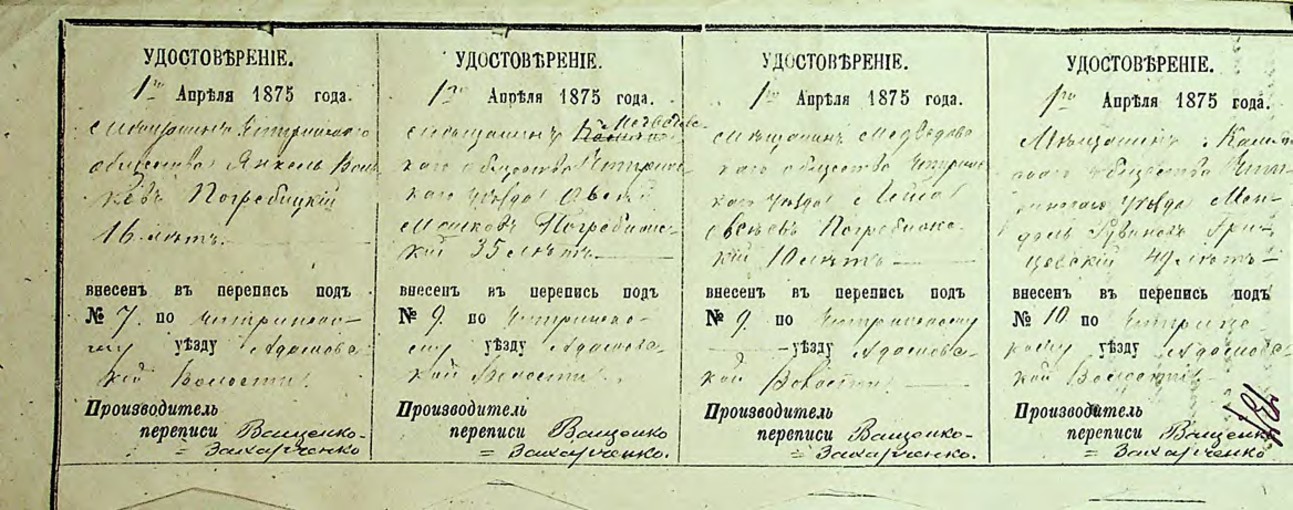 УДОСТОВѢРЕНІЕ.
1го Апрѣля 1875 года.
Мѣщанинъ Чигринского
общества Янкель Вольковъ
Погребицкій
16 лѣтъ.
внесенъ въ перепись подъ
№ 7. по Чигринско-
му уѣзду Адамовс-
кой Волости.
Производитель
переписи Ващенко-
=Захарченко
УДОСТОВѢРЕНІЕ.
1го Апрѣля 1875 года.
Мѣщанинъ
каго общества Чигринс-
каго уѣзда Овсей
Мошковъ Погребинс-
кій 35 лѣтъ
внесенъ въ перепись подъ
№ 9. по Чигринско-
му уѣзду Адамовс-
кой Волости.
Производитель
переписи Ващенко
=Захарченко.
УДОСТОВѢРЕНІЕ.
1го Апрѣля 1875 года.
Мѣщанинъ Медведовс-
каго общества Чигринс-
каго уѣзда Лейба
Овсѣевъ Погребинс-
кій 10 лѣтъ
внесенъ въ перепись подъ
№ 9. по Чигринскому
уѣзду Адамовс-
кой Волости
Производитель
переписи Ващенко-
=Захарченко.
УДОСТОВѢРЕНІЕ.
1го Апрѣля 1875 года.
Мѣщанинъ
общества Чиги-
ринскаго уѣзда Мен-
дель Гри-
цевскій 49 лѣтъ
внесенъ въ перепись подъ
№ 10. по Чигринс-
кому уѣзду Адамовс-
кой Волости
Производитель
переписи Ващенко
=Захарченко